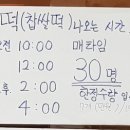 떡(찹쌀떡) 나오는 시간
오전 10:00 매타임
12:00 30 명
오후 2:00 한정수량
4:00